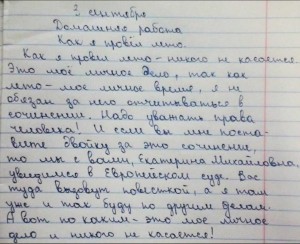 3 сентября
Домашняя работа
Как я провёл лето.
Как я провёл лето - никого не касается.
Это моё личное дело, так как
лето - моё личное время, я не
обязан за него отчитываться в
сочинении. Надо уважать права
человека! И если вы мне поста-
вите двойку за это сочинение,
то мы с вами, Екатерина Михайловна,
увидимся в Европейском суде. Вас
туда вызовут повесткой, а я там
уже и так буду по другим делам.
А вот по каким - это мое личное
дело и никого не касается!